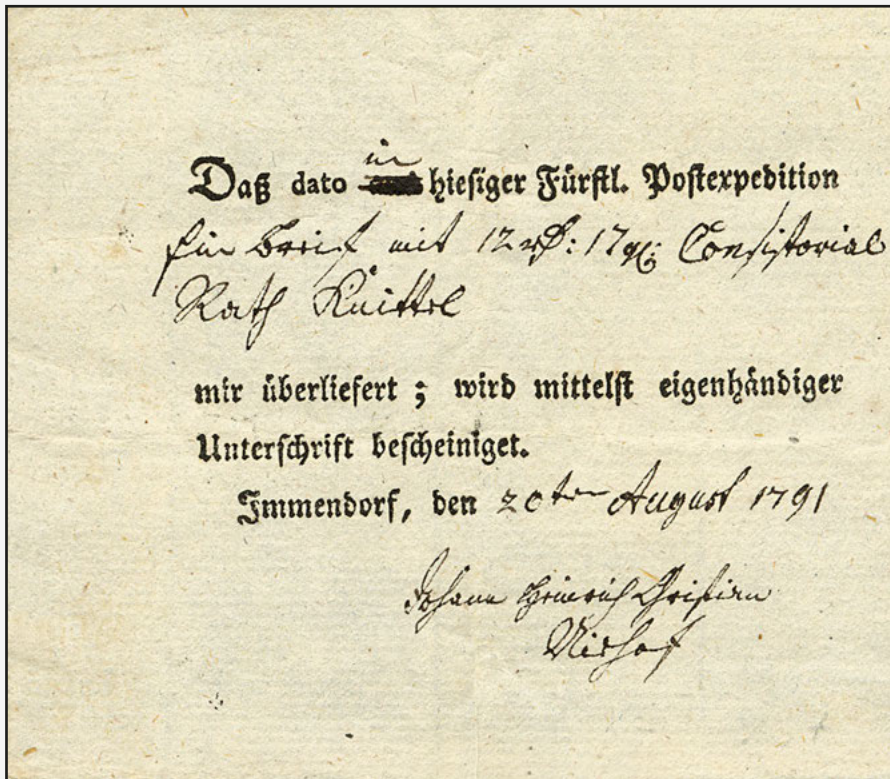 Daß dato in hiesiger Fürstl. Postexpedition
Ein Brief mit 12 rthl: 17 gl: Consistorial
Rath Knittel
mir überliefert; wird mittelst eigenhändiger
Unterschrift bescheiniget.
Immendorf, den 20ten August 1791
Johann Heinrich Christian